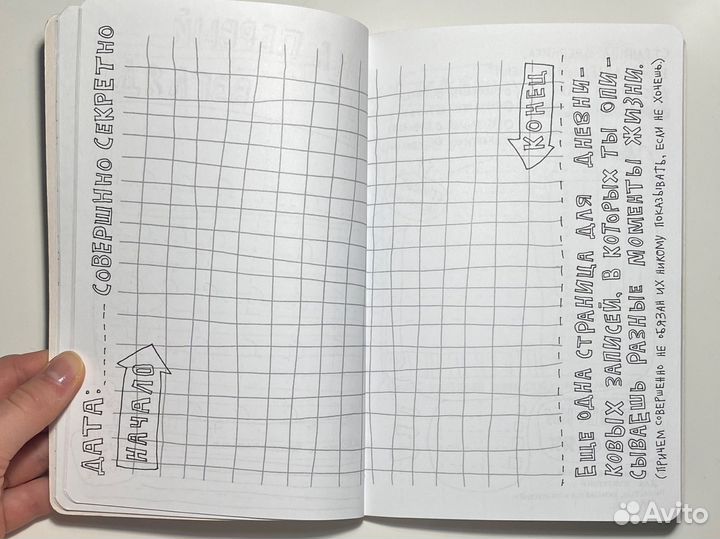 ДАТА: СОВЕРШЕННО СЕКРЕТНО
НАЧАЛО
КОНЕЦ
ЕЩЕ ОДНА СТРАНИЦА ДЛЯ ДНЕВНИ-
КОВЫХ ЗАПИСЕЙ, В КОТОРЫХ ТЫ ОПИ-
СЫВАЕШЬ РАЗНЫЕ МОМЕНТЫ ЖИЗНИ.
(ПРИЧЕМ СОВЕРШЕННО НЕ ОБЯЗАН ИХ НИКОМУ ПОКАЗЫВАТЬ, ЕСЛИ НЕ ХОЧЕШЬ)
Avito